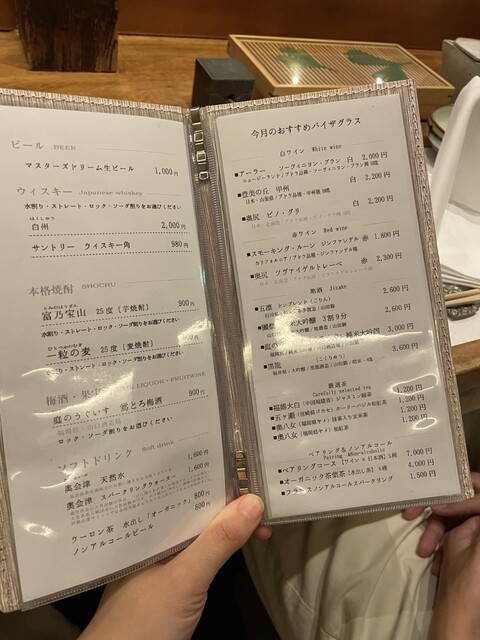 ビール BEER
マスターズドリーム生ビール 1,000円
ウィスキー Japanese whiskey
水割り・ストレート・ロック・ソーダ割りをお選びください
はくしゅう
白州 2,000円
サントリー ウイスキー角 980円
本格焼酎 SHOCHU
富乃宝山 25度 〔芋焼酎〕 900円
水割り・ストレート・ロック・ソーダ割りをお選びください
一粒の麦 25度 〔麦焼酎〕
水割り・ストレート・ロック・ソーダ割りをお選びください
梅酒・果 LIQUOR・FRUITWINE
庭のうぐいす 鶯とろ梅酒
ロック・ソーダ割りをお選びください
ソフトドリンク Soft drink
奥会津 天然水 1,600円
奥会津 スパークリングウォーター 1,600円
ウーロン茶 水出し〔オーガニック〕 800円
ノンアルコールビール 800円
今月のおすすめバイザグラス
白ワイン White wine
■アーラー ソーヴィニヨン・ブラン 白 2,000円
ニュージーランド/ブドウ品種・ソーヴィニヨン・ブラン
■登美の丘 甲州 白 2,200円
■奥尻 ピノ・グリ 白 2,200円
赤ワイン Red wine
■スモーキング・ルーン ジンファンデル 赤 1,800円
カリフォルニア/ブドウ品種・ジンファンデル
■奥尻 ツヴァイゲルトレーベ 赤 2,300円
地酒 Jizake
■五凛 (ごりん) 2,600円
純米大吟醸 3割9分 2,600円
■庭の 純米大吟醸 3,000円
■黒龍 (こくりゅう) 3,600円
厳選茶
Carefully selected tea
■福建大白 (中国福建省) ジャスミン緑茶 1,200円
■五ヶ瀬 (宮崎県ゴカセ) 1,200円
■奥八女 (福岡県ヤメ) 抹茶入り玄米茶 1,200円
■奥八女 (福岡県ヤメ) 和紅茶 1,200円
ペアリング&ノンアルコール
Pairing &Non-alcoholic
■ペアリングコース 【ワイン×日本酒】 5種 7,000円
■オーガニック茶葉茶 【水出し茶】 4種 4,000円
■フランスノンアルコールスパークリング 1,500円